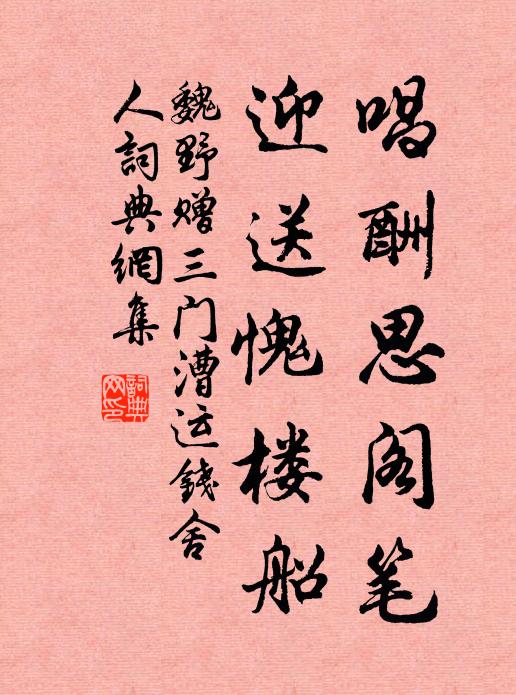 唱酬思阁笔
迎送愧楼船
魏野赠三门漕运錢舍
人詞典網集
詞典
网印